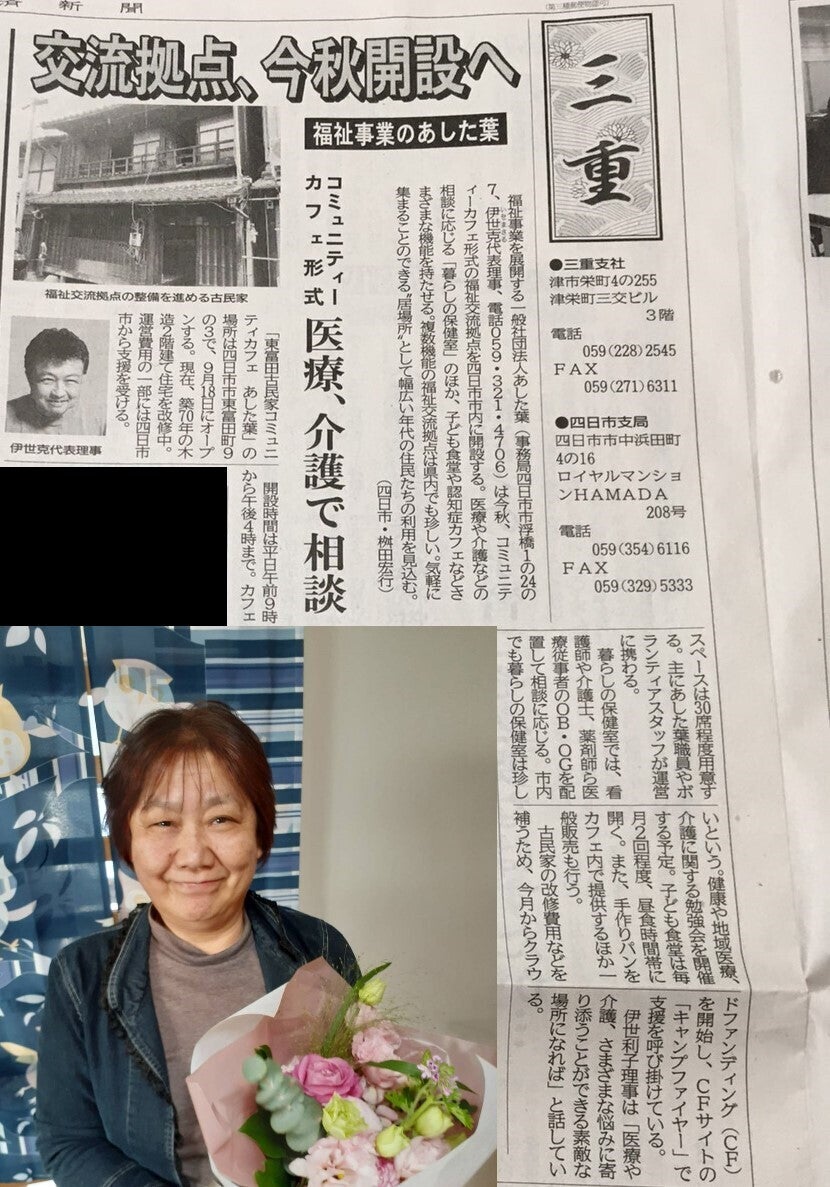 済新聞
(第三種郵便物認可)
交流拠点、今秋開設へ
福祉事業のあした葉
コミュニティー
カフェ形式
医療、介護で相談
福祉交流拠点の整備を進める古民家
伊世克代表理事
三重
●三重支社
津市栄町4の255
津栄町三交ビル
3階
電話
059(228)2545
FAX
059(271)6311
●四日市支局
四日市市中浜田町
4の16
ロイヤルマンショ
ンHAMADA
208号
電話
059(354)6116
FAX
059(329)5333
福祉事業を展開する一般社団法人あした葉(事務局四日市市浮橋1の24の
7、伊世克代表理事、電話059・321・4706)は今秋、コミュニテ
ィーカフェ形式の福祉交流拠点を四日市市内に開設する。医療や介護などの
相談に応じる「暮らしの保健室」のほか、子ども食堂や認知症カフェなどさ
まざまな機能を持たせる。複数機能の福祉交流拠点は県内でも珍しい。気軽に
集まることのできる〝居場所〟として幅広い年代の住民たちの利用を見込む。
(四日市・桝田宏行)
「東富田古民家コミュニ
ティカフェ あした葉」の
場所は四日市市東富田町9
の3で、9月18日にオープ
ンする。現在、築70年の木
造2階建て住宅を改修中。
運営費用の一部には四日市
市から支援を受ける。
開設時間は平日午前9時
から午後4時まで。カフェ
スペースは30席程度用意す
る。主にあした葉職員やボ
ランティアスタッフが運営
に携わる。
暮らしの保健室では、看
護師や介護士、薬剤師ら医
療従事者のOB・OGを配
置して相談に応じる。市内
でも暮らしの保健室は珍し
いという。健康や地域医療、
介護に関する勉強会を開催
する予定。子ども食堂は毎
月2回程度、昼食時間帯に
開く。また、手作りパンを
カフェ内で提供するほか一
般販売も行う。
古民家の改修費用などを
補うため、今月からクラウ
ドファンディング(CF)
を開始し、CFサイトの
「キャンプファイヤー」で
支援を呼び掛けている。
伊世利子理事は「医療や
介護、さまざまな悩みに寄
り添うことができる素敵な
場所になれば」と話してい
る。